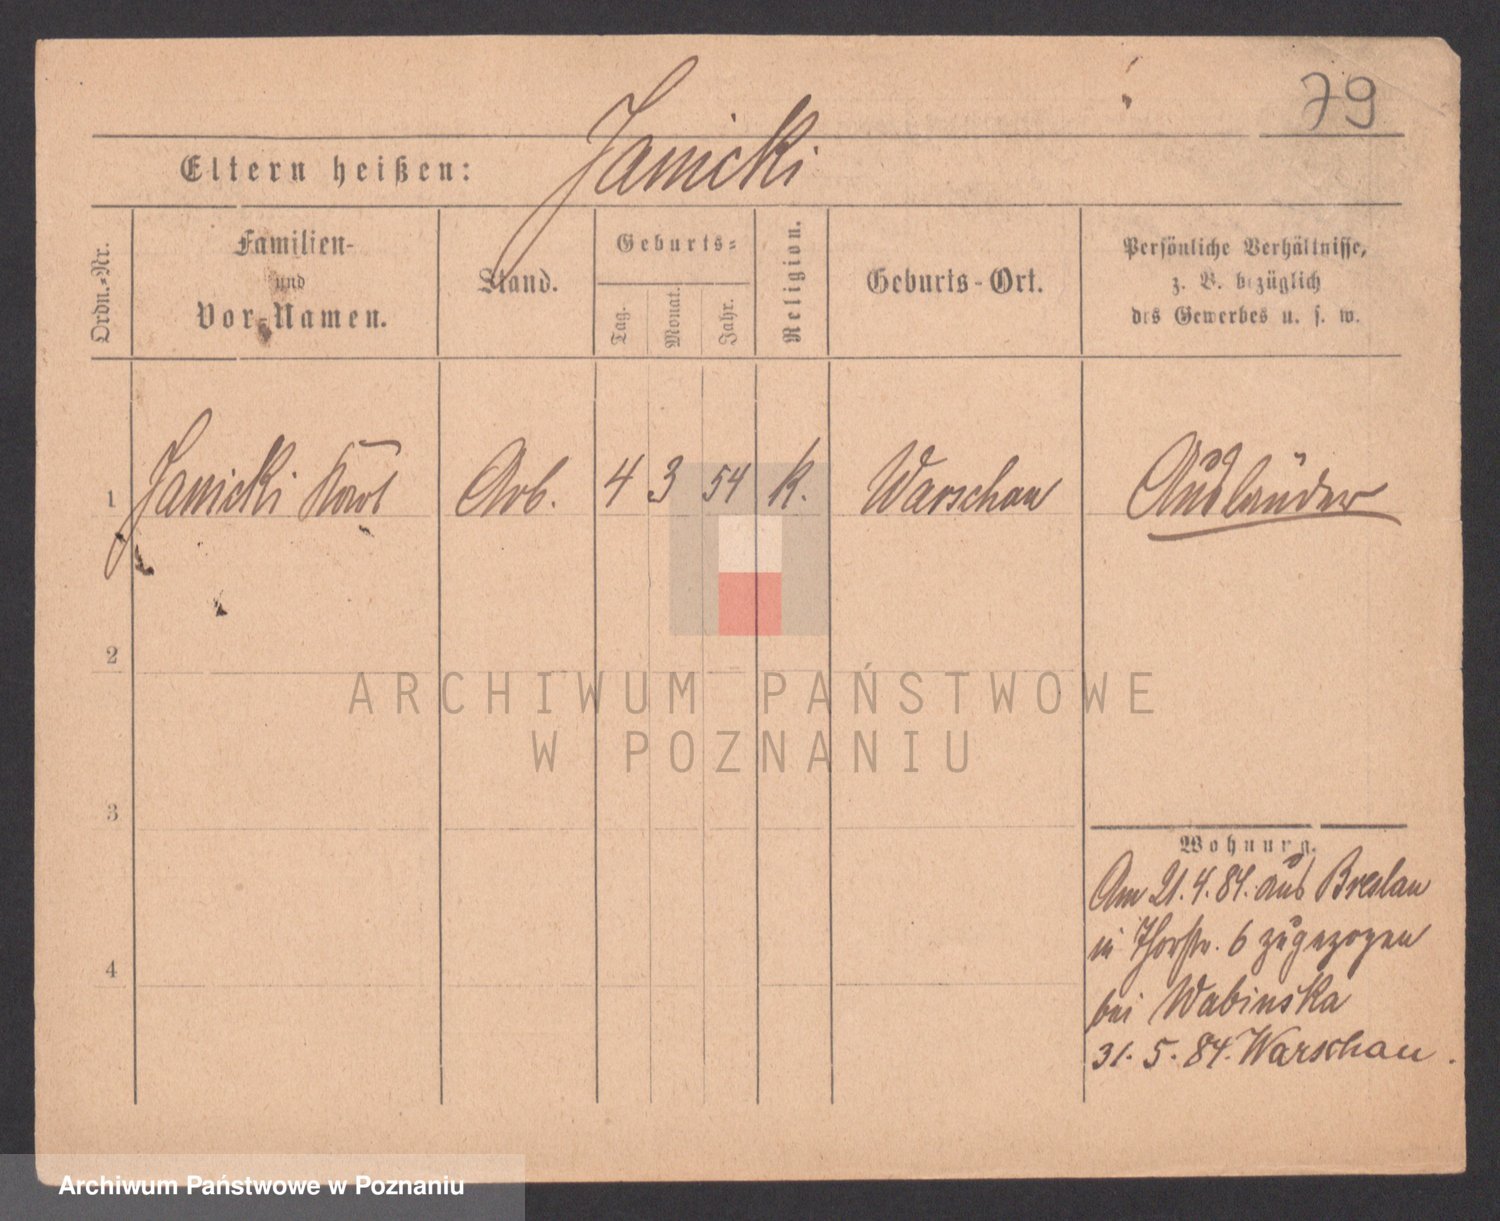 79
Janicki
Eltern heißen:
Ordn.-Nr.
Familien-
und
Vor-Namen.
Stand.
Geburts-
Tag.
Monat.
Jahr.
Religion.
Geburts-Ort.
Persönliche Verhältnisse,
z. B. bezüglich
des Gewerbes u. s. w.
1 Janicki Karl Arb. 4 3 54 k. Warschau Ausländer
2
ARCHIWUM PAŃSTWOWE
W POZNANIU
3
Wohnung.
Am 21.4.84. aus Breslau
in Thorstr. 6 zugezogen
bei Wabinska
4
31. 5. 84. Warschau.
Archiwum Państwowe w Poznaniu